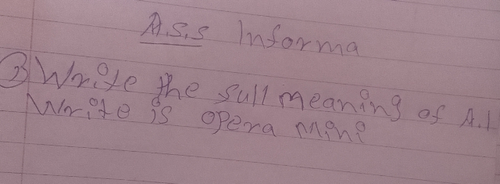 A.S.S Informa
3) Write the full meaning of A.I
Write is opera mini